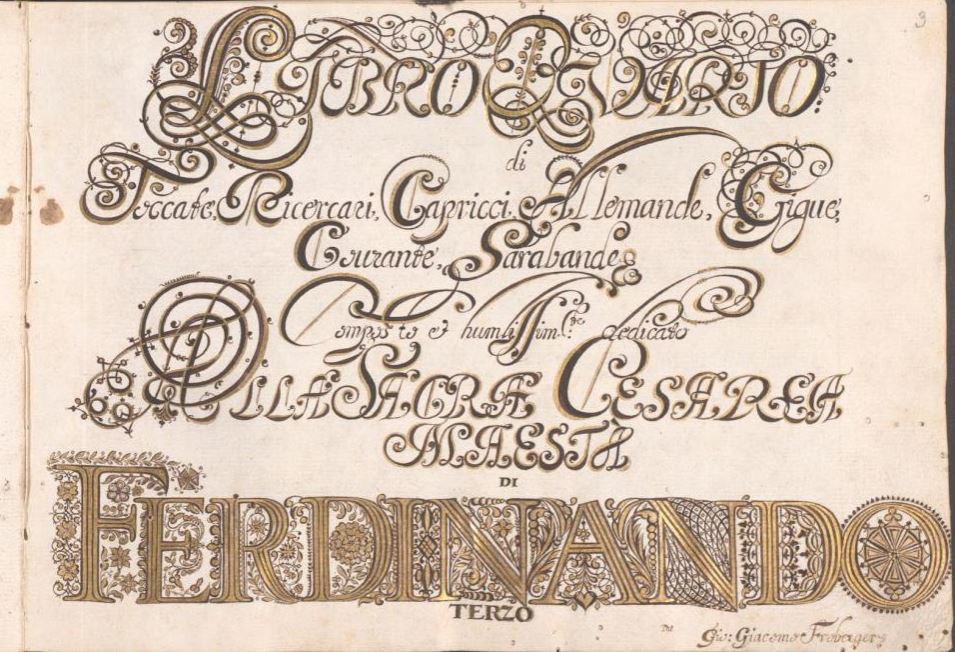 3
LIBRO QUARTO
di
Toccate, Ricercari, Capricci, Allemande, Gigue,
Courante, Sarabande
Composto et humilissim.te dedicato
ALLA SACRA CESAREA
MAESTÀ
DI
FERDINANDO
TERZO
Gio: Giacomo Froberger